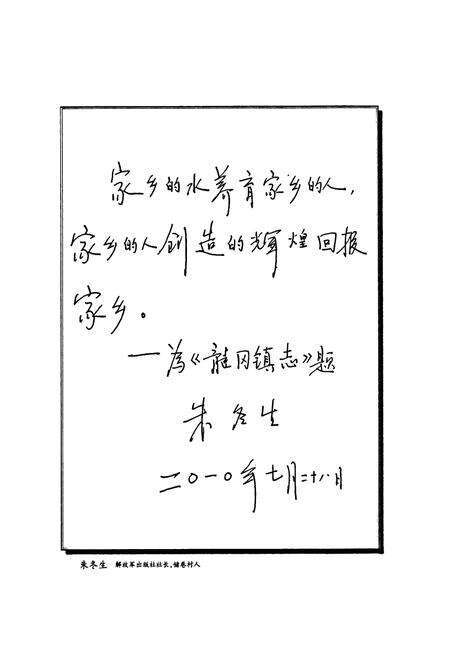 家乡的水养育家乡的人，
家乡的人创造的辉煌回报
家乡。
—为《龙冈镇志》题
朱冬生
二〇一〇年七月二十八日
朱冬生 解放军出版社社长,储巷村人